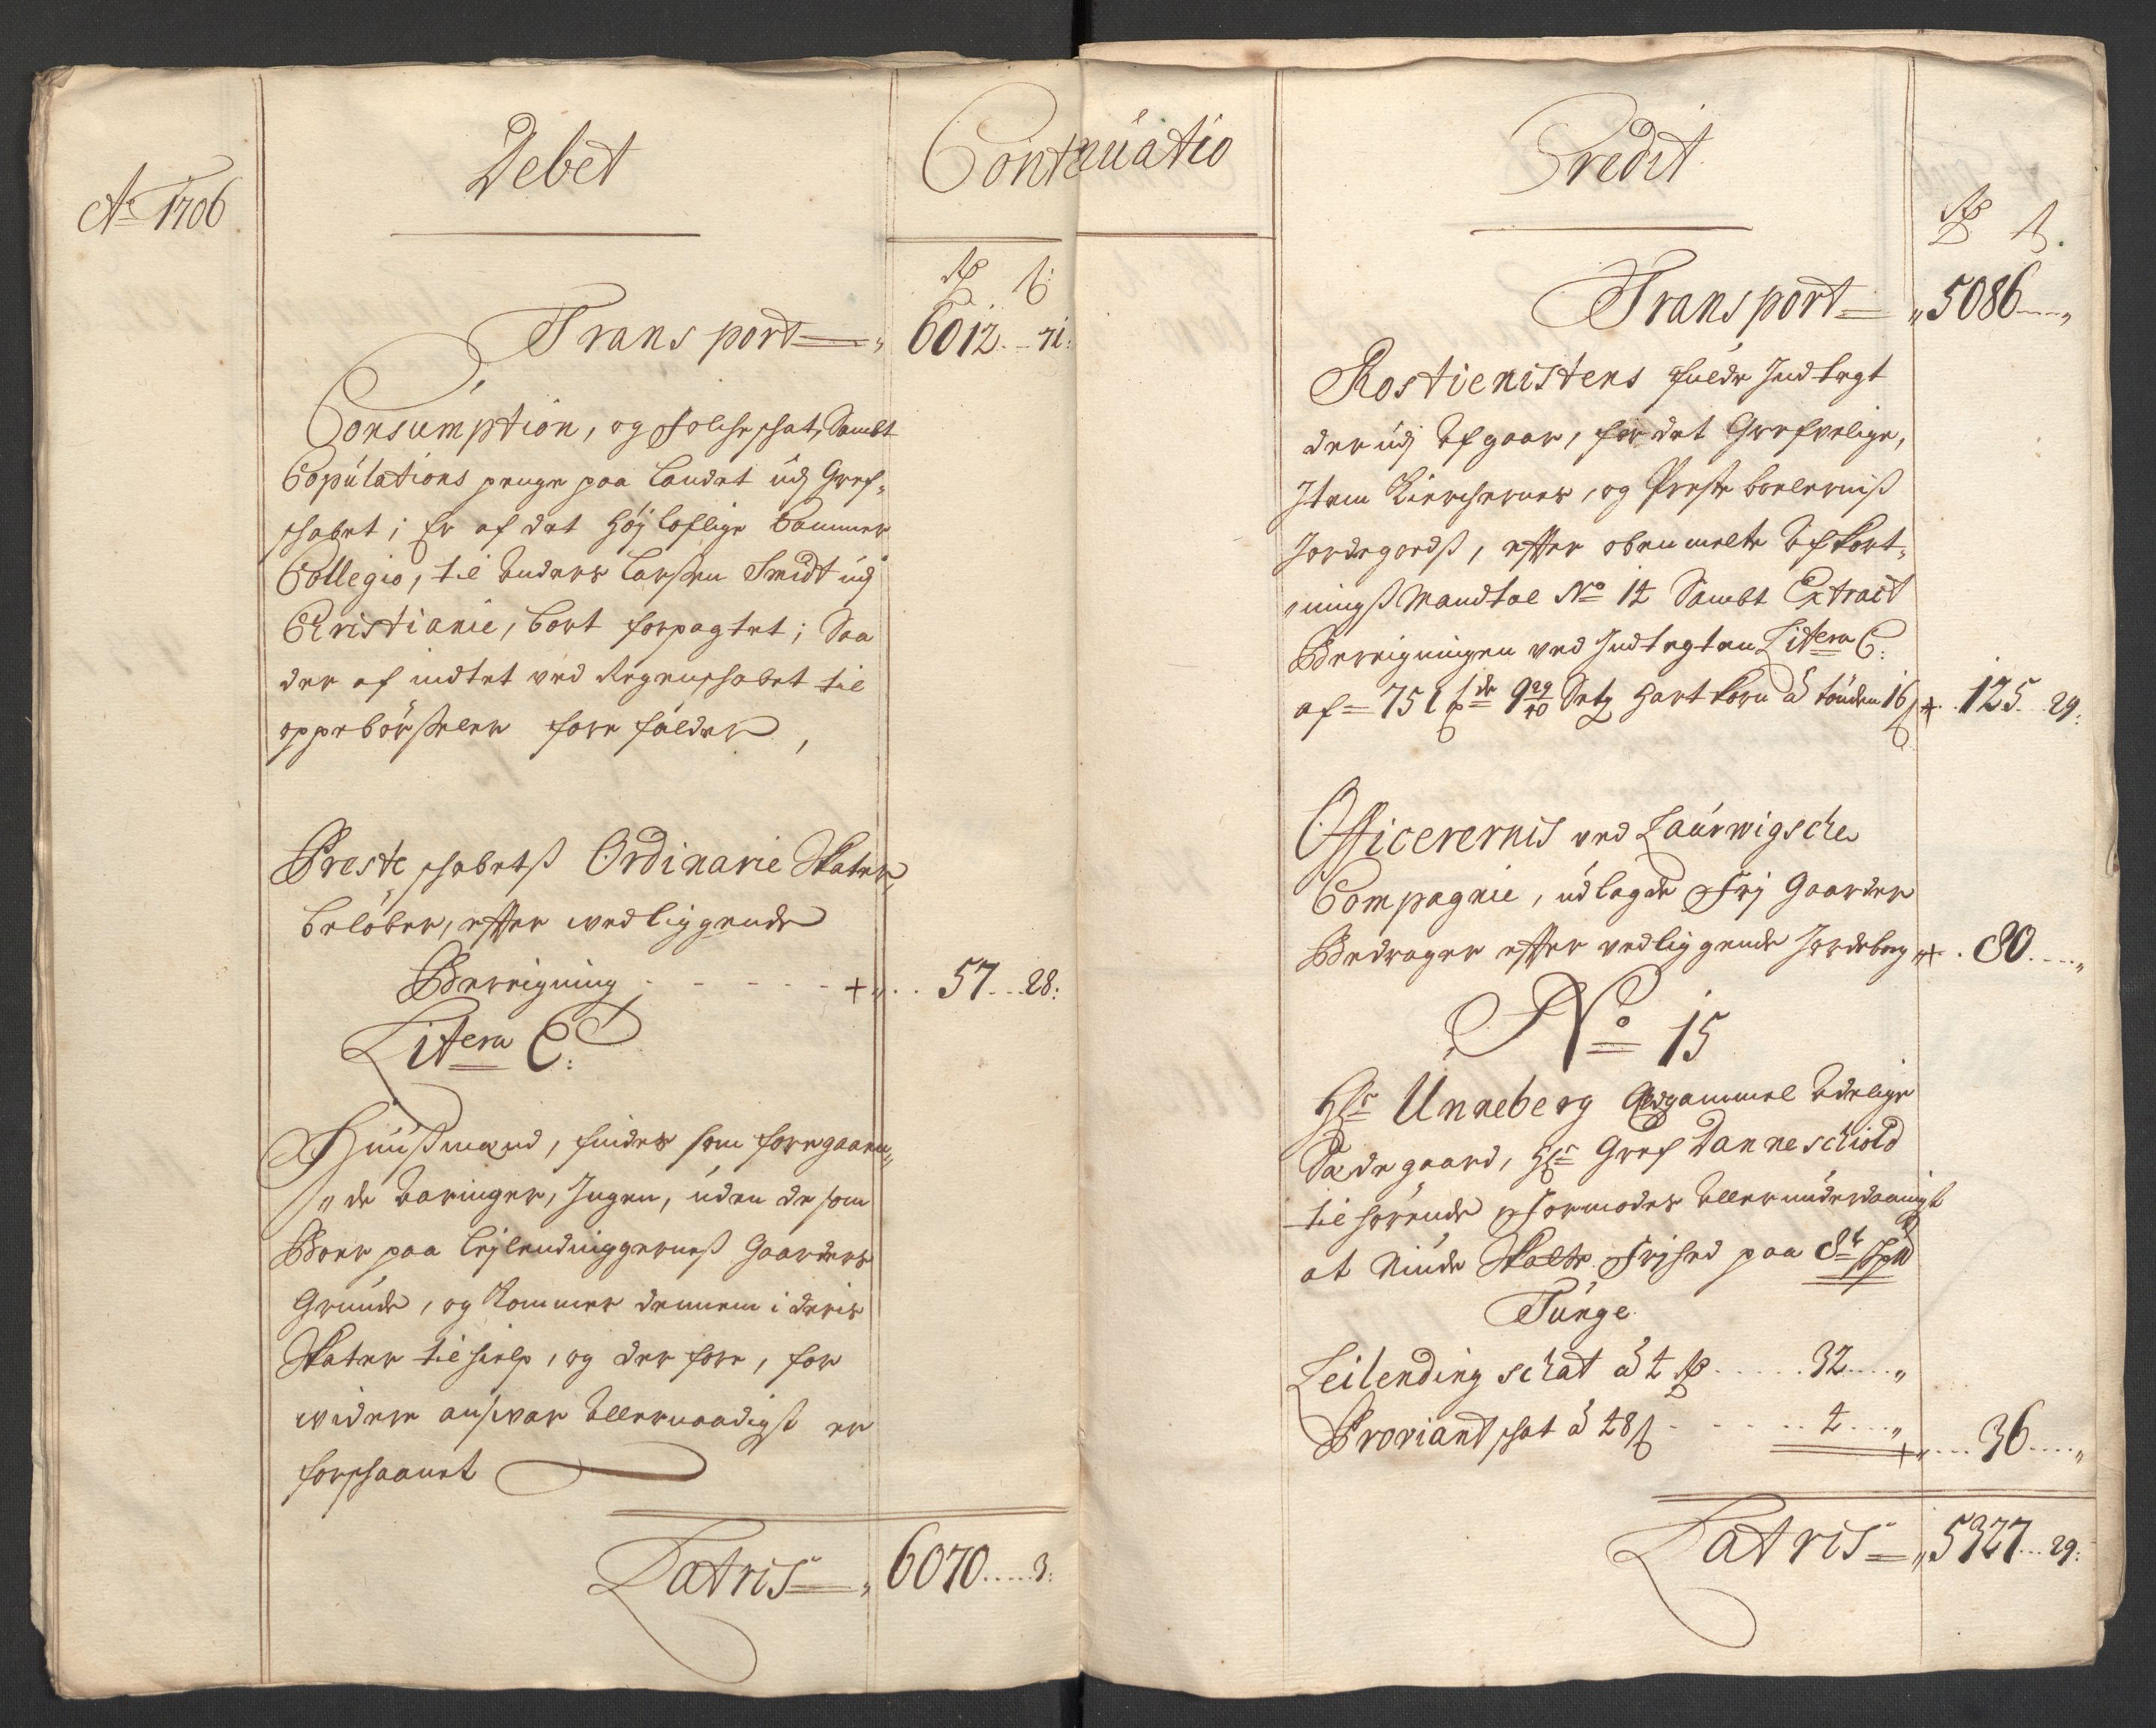 Debet
Continuatio
Ao 1706
Rd ß:
Transport = „ 6012 . . 71:
Consumption, og Folcheschat, Sambt
Copulations penge paa Landet udj Gref„
schabet; Er af det Høj Loflige Cammer
Collegio, til Anders Larßen Smidt udj
Christianie, bort forpagtet; Saa
der af indtet ved Regenschabet til
oppebørßeler fore falder,
Preste schabetß Ordinarie Skater,
beløber, effter wedliggende
Bereigning . - - - - - + „ . . 57 . . 28:
Litera C:
Huußmænd, findes som foregaaen„
„de Aaringer, Ingen, uden de som
Boer paa Lejlendinggerneß Gaarders
Grunde, og kommer dennem i deris
Skater til hielp, og der fore, for
widere ansvar Allernaadigst er
forschaanet
Latris = „ 6070 . . . . . 3:
Credit
Rd ß.
Transport = „ 5086 . . . . „
Rostienistens fulde Indtegt
der udj Afgaar, for det Grefvelige,
Item Kirchernes, og Preste boelerniß
Jordegodß, effter obenmelte Afkort„
„ningß Mandtal No 14 Sambt Extract
Bereigningen ved Indtegten Litera C:
af = 751 9 29/40 Setg Hart korn â tønden 16 ß + . 125 . . 29:
Officerernis ved Laurwigsche
Compagnie, udlagde Frj Gaarder
Bedrager effter vedliggende Jordebog „ + . 80 . . . . „
No 15
Hr Unneberg Eldgammel Adelige
Sædegaard, Hr Gref Danneschiold
tilhørende Formodes Allerunderdaanigst
at Niude Skatte Frjhed paa 8t
Tunge
Leilending schat â 4 Rd . . . . . 32 . . . . „
Proviant schat â 48 ß - - - . . 4 . . . „
+ „ . . . . 36 . . . . „
Latris = „ 5327 . . . 29: